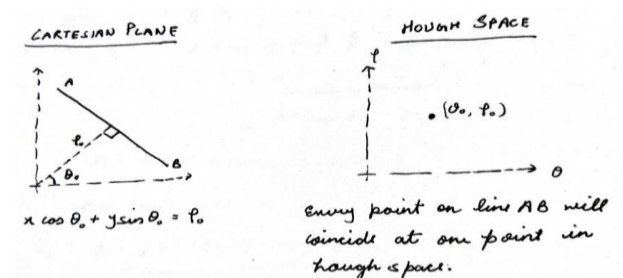 CARTESIAN PLANE
A
ρ₀
θ₀
B
x cos θ₀ + y sin θ₀ = ρ₀
HOUGH SPACE
ρ
(θ₀, ρ₀)
θ
Every point on line AB will
coincide at one point in
hough space.